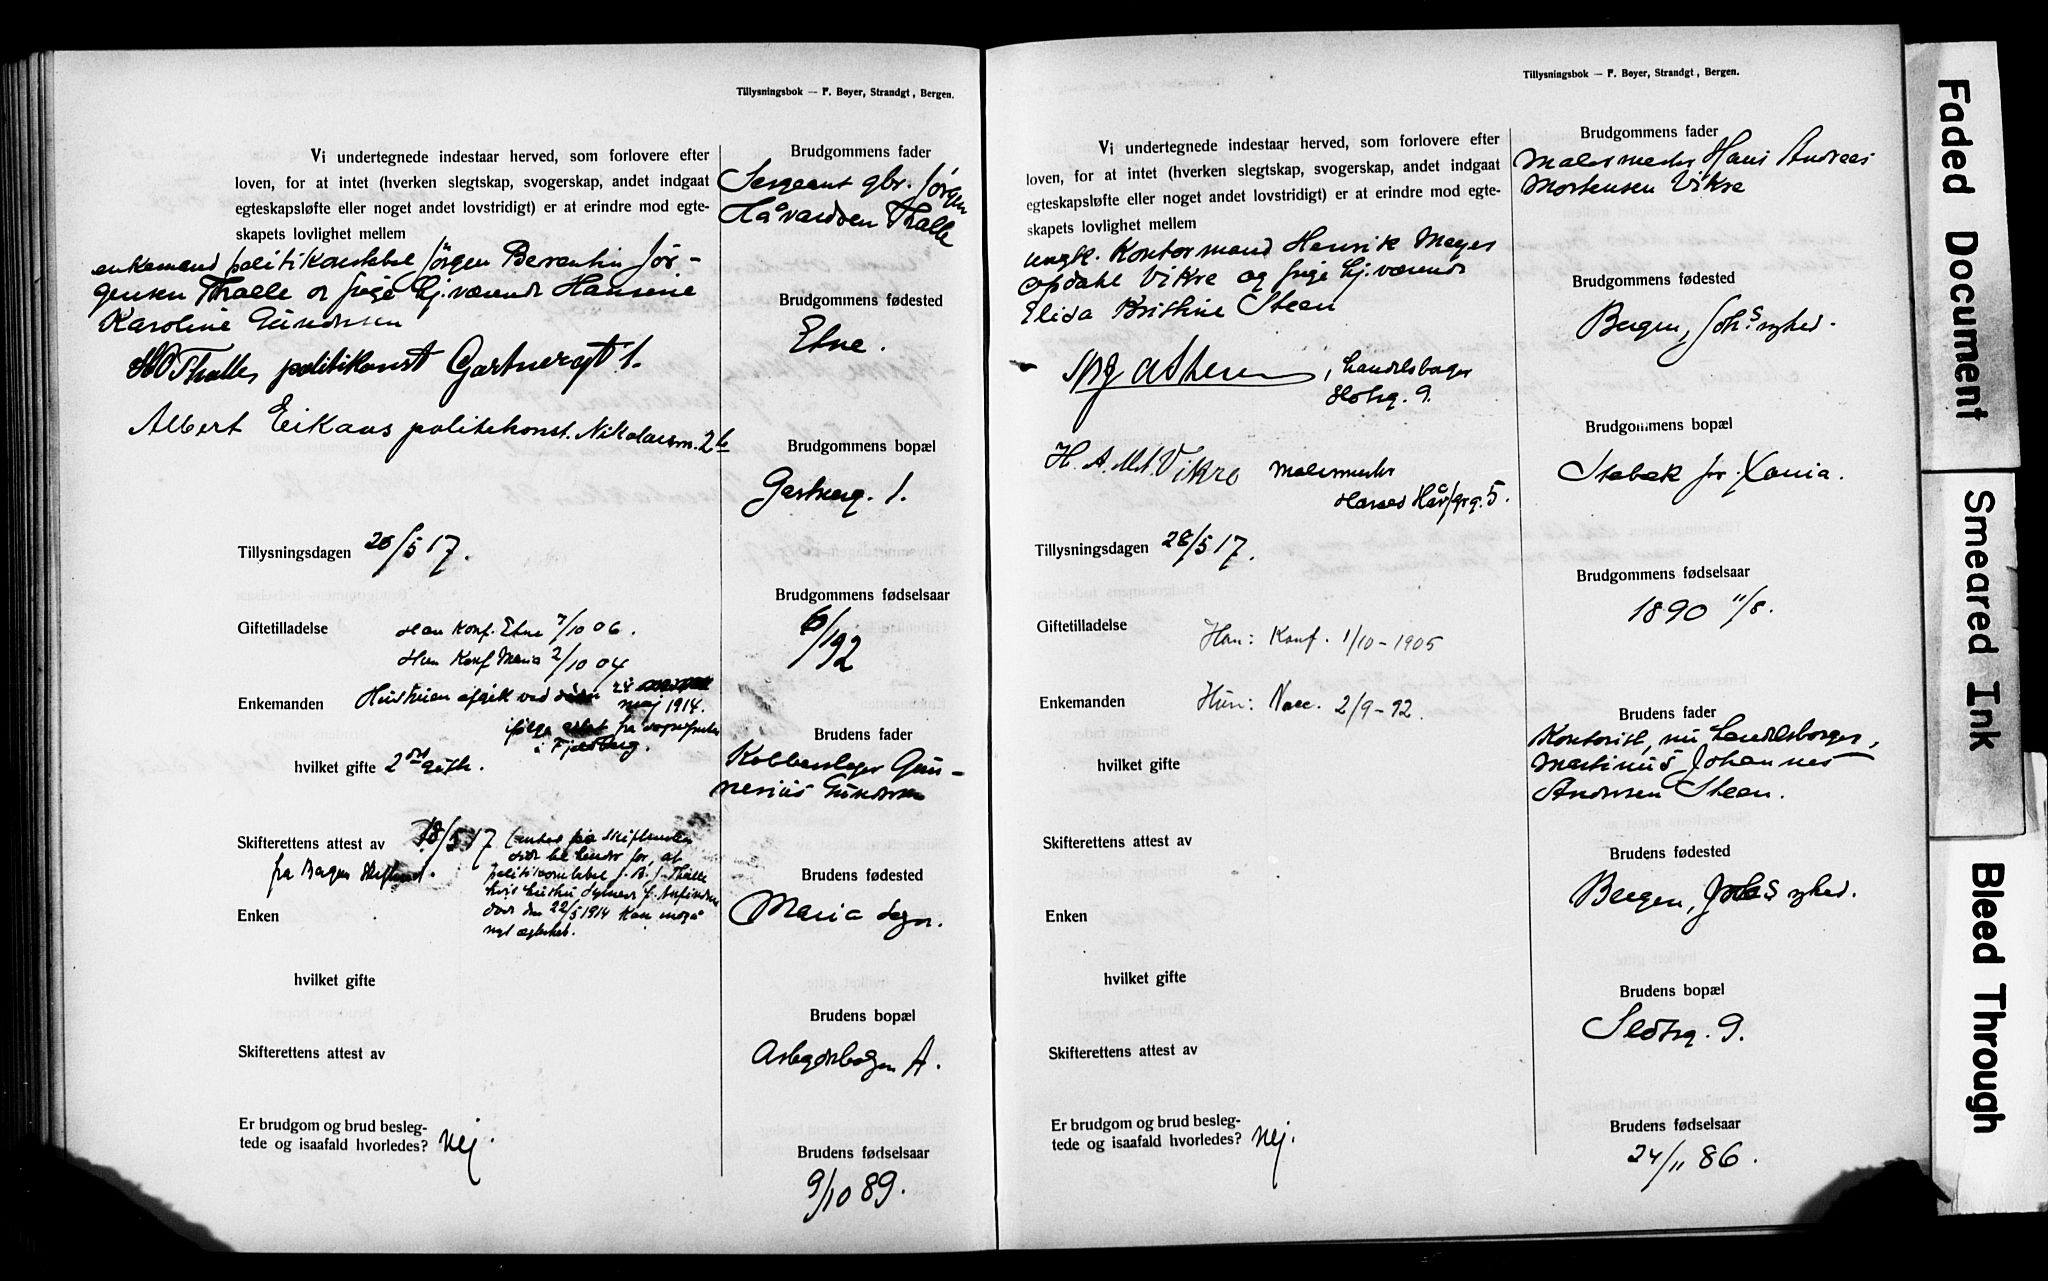 Tillysningsbok — F. Bøyer, Strandgt, Bergen.
Vi undertegnede indestaar herved, som forlovere efter
loven, for at intet (hverken slegtskap, svogerskap, andet indgaat
egteskapsløfte eller noget andet lovstridigt) er at erindre mod egte-
skapets lovlighet mellem
enkemand politikonstabel Jörgen Berentin Jör-
gensen Thalle og pige hj. værende Hansine
Karoline Gundersen
Thalle politikonst Gartnergt 1.
Albert Eikaas politikonst. Nikolaism. 2b
Tillysningsdagen 28/5 17.
Giftetilladelse
Han Konf. Etne 7/10 06.
Hun Konf Maria 2/10 04
Enkemanden Hustruen afgik ved døden 22
maj 1914.
ifølge attest fra sognepresten
i Fjelberg.
hvilket gifte 2det gifte.
Skifterettens attest av 18/5 17
fra Bergen Skifteret.
at
politikonstabel J. B. J. Thalle
hvis hustru
døde den 22/5 1914 kan indgå
nyt ægteskab.
Enken
hvilket gifte
Skifterettens attest av
Er brudgom og brud besleg-
tede og isaafald hvorledes? Nej.
Brudgommens fader
Sergeant gbr. Jörgen
Håvardsen Thalle
Brudgommens fødested
Etne.
Brudgommens bopæl
Gartnerg. 1.
Brudgommens fødselsaar
6/1 92
Brudens fader
Kobberslager Gun-
nerius Gundersen
Brudens fødested
Maria sogn.
Brudens bopæl
Arbeiderboligen A.
Brudens fødselsaar
9/10 89.
Tillysningsbok — F. Bøyer, Strandgt, Bergen.
Vi undertegnede indestaar herved, som forlovere efter
loven, for at intet (hverken slegtskap, svogerskap, andet indgaat
egteskapsløfte eller noget andet lovstridigt) er at erindre mod egte-
skapets lovlighet mellem
ungk. Kontormand Henrik Meyer
Opdahl Vikre og pige hj. værende
Elida Kristine Steen
Steen, handelsborger
9.
H. A. M. Vikre malermester
5.
Tillysningsdagen 28/5 17.
Giftetilladelse
Han: Konf. 1/10 – 1905
Enkemanden
Hun: Vacc. 2/9 – 92.
hvilket gifte
Skifterettens attest av
Enken
hvilket gifte
Skifterettens attest av
Er brudgom og brud besleg-
tede og isaafald hvorledes? Nej.
Brudgommens fader
Malermester Hans Andreas
Mortensen Vikre
Brudgommens fødested
Bergen, Johs nyhed.
Brudgommens bopæl
Stabæk pr. Xania.
Brudgommens fødselsaar
1890 11/8.
Brudens fader
Kontorist, nu handelsborger,
Martinus Johannes
Andersen Steen.
Brudens fødested
Bergen, Johs nyhed.
Brudens bopæl
9.
Brudens fødselsaar
24/11 86.
Faded Document
Smeared Ink
Bleed Through